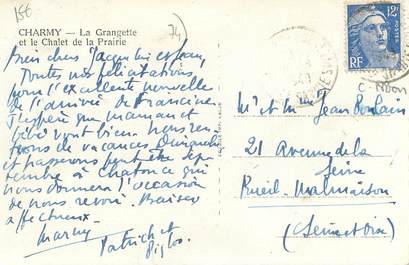 156
74
CHARMY — La Grangette
et le Chalet de la Prairie
Bien chers Jacqueline et Jean,
Toutes nos félicitations
pour l'excellente nouvelle
de l'arrivée de Francine
J'espère que maman et
bébé vont bien. Nous ren-
trons de vacances Dimanche
et passerons peut être sep-
tembre à Chatou ce qui
nous donnera l'occasion
de nous revoir. Baisers
affectueux.
Marny
Patrick et
12F
POSTES
RF
Mr et Mme Jean
21 Avenue de la
Seine
Rueil-Malmaison
(Seine et Oise)